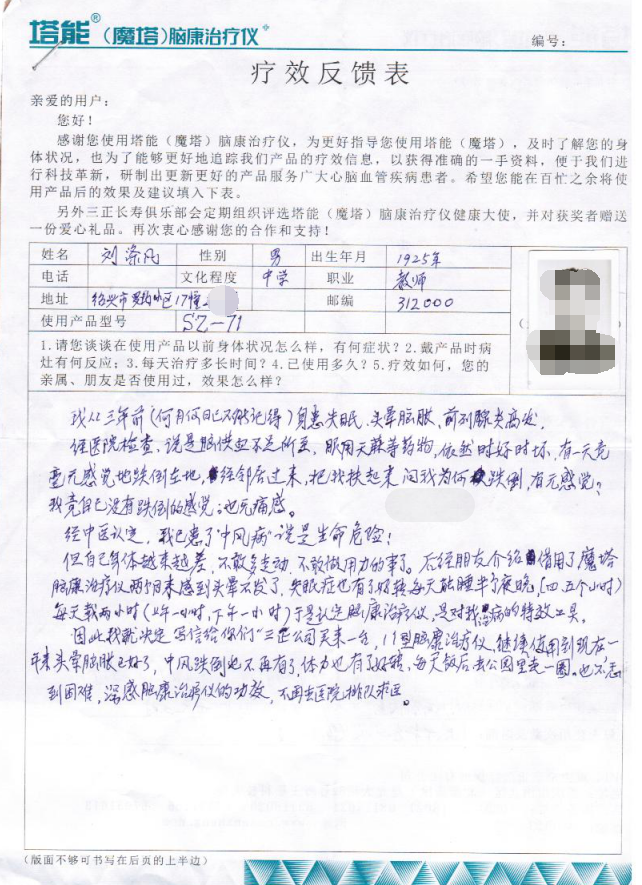 塔能®（魔塔）脑康治疗仪
编号：
疗效反馈表
亲爱的用户：
您好！
感谢您使用塔能（魔塔）脑康治疗仪，为更好指导您使用塔能（魔塔），及时了解您的身
体状况，也为了能够更好地追踪我们产品的疗效信息，以获得准确的一手资料，便于我们进
行科技革新，研制出更新更好的产品服务广大心脑血管疾病患者。希望您能在百忙之余将使
用产品后的效果及建议填入下表。
另外三正长寿俱乐部会定期组织评选塔能（魔塔）脑康治疗仪健康大使，并对获奖者赠送
一份爱心礼品。再次衷心感谢您的合作和支持！
姓名 刘 性别 男 出生年月 1925年
电话 文化程度 中学 职业 教师
地址 绍兴市 小区17幢2 邮编 312000
使用产品型号 SZ-11
1.请您谈谈在使用产品以前身体状况怎么样，有何症状？2.戴产品时病
灶有何反应；3.每天治疗多长时间？4.已使用多久？5.疗效如何，您的
亲属、朋友是否使用过，效果怎么样？
我从三年前（何月何日已不能记得）身患失眠、头晕脑胀、前列腺炎高发。
经医院检查，说是脑供血不足所至，服用天麻等药物，依然时好时坏，有一天竟
毫无感觉地跌倒在地，经邻居过来，把我扶起来问我为何跌倒，有无感觉？
我竟自己没有跌倒的感觉；也无痛感。
经中医认定，我已患了“中风病”说是生命危险！
但自己身体越来越差，不敢多走动，不敢做用力的事了。后经朋友介绍借用了魔塔
脑康治疗仪两个月来感到头晕不发了，失眠症也有了好转每天能睡半个晚（四五个小时）
每天戴两小时（上午一小时，下午一小时）于是认定脑康治疗仪，是对我病的特效工具。
因此我就决定写信给你们“三正公司买来一台，11型脑康治疗仪，继续使用到现在一
年来头晕脑胀已好了，中风跌倒也不再有了，体力也有了好转，每天饭后去公园里走一圈，也不感
到困难，深感脑康治疗仪的功效，不再去医院排队求医。
（版面不够可书写在后页的上半边）